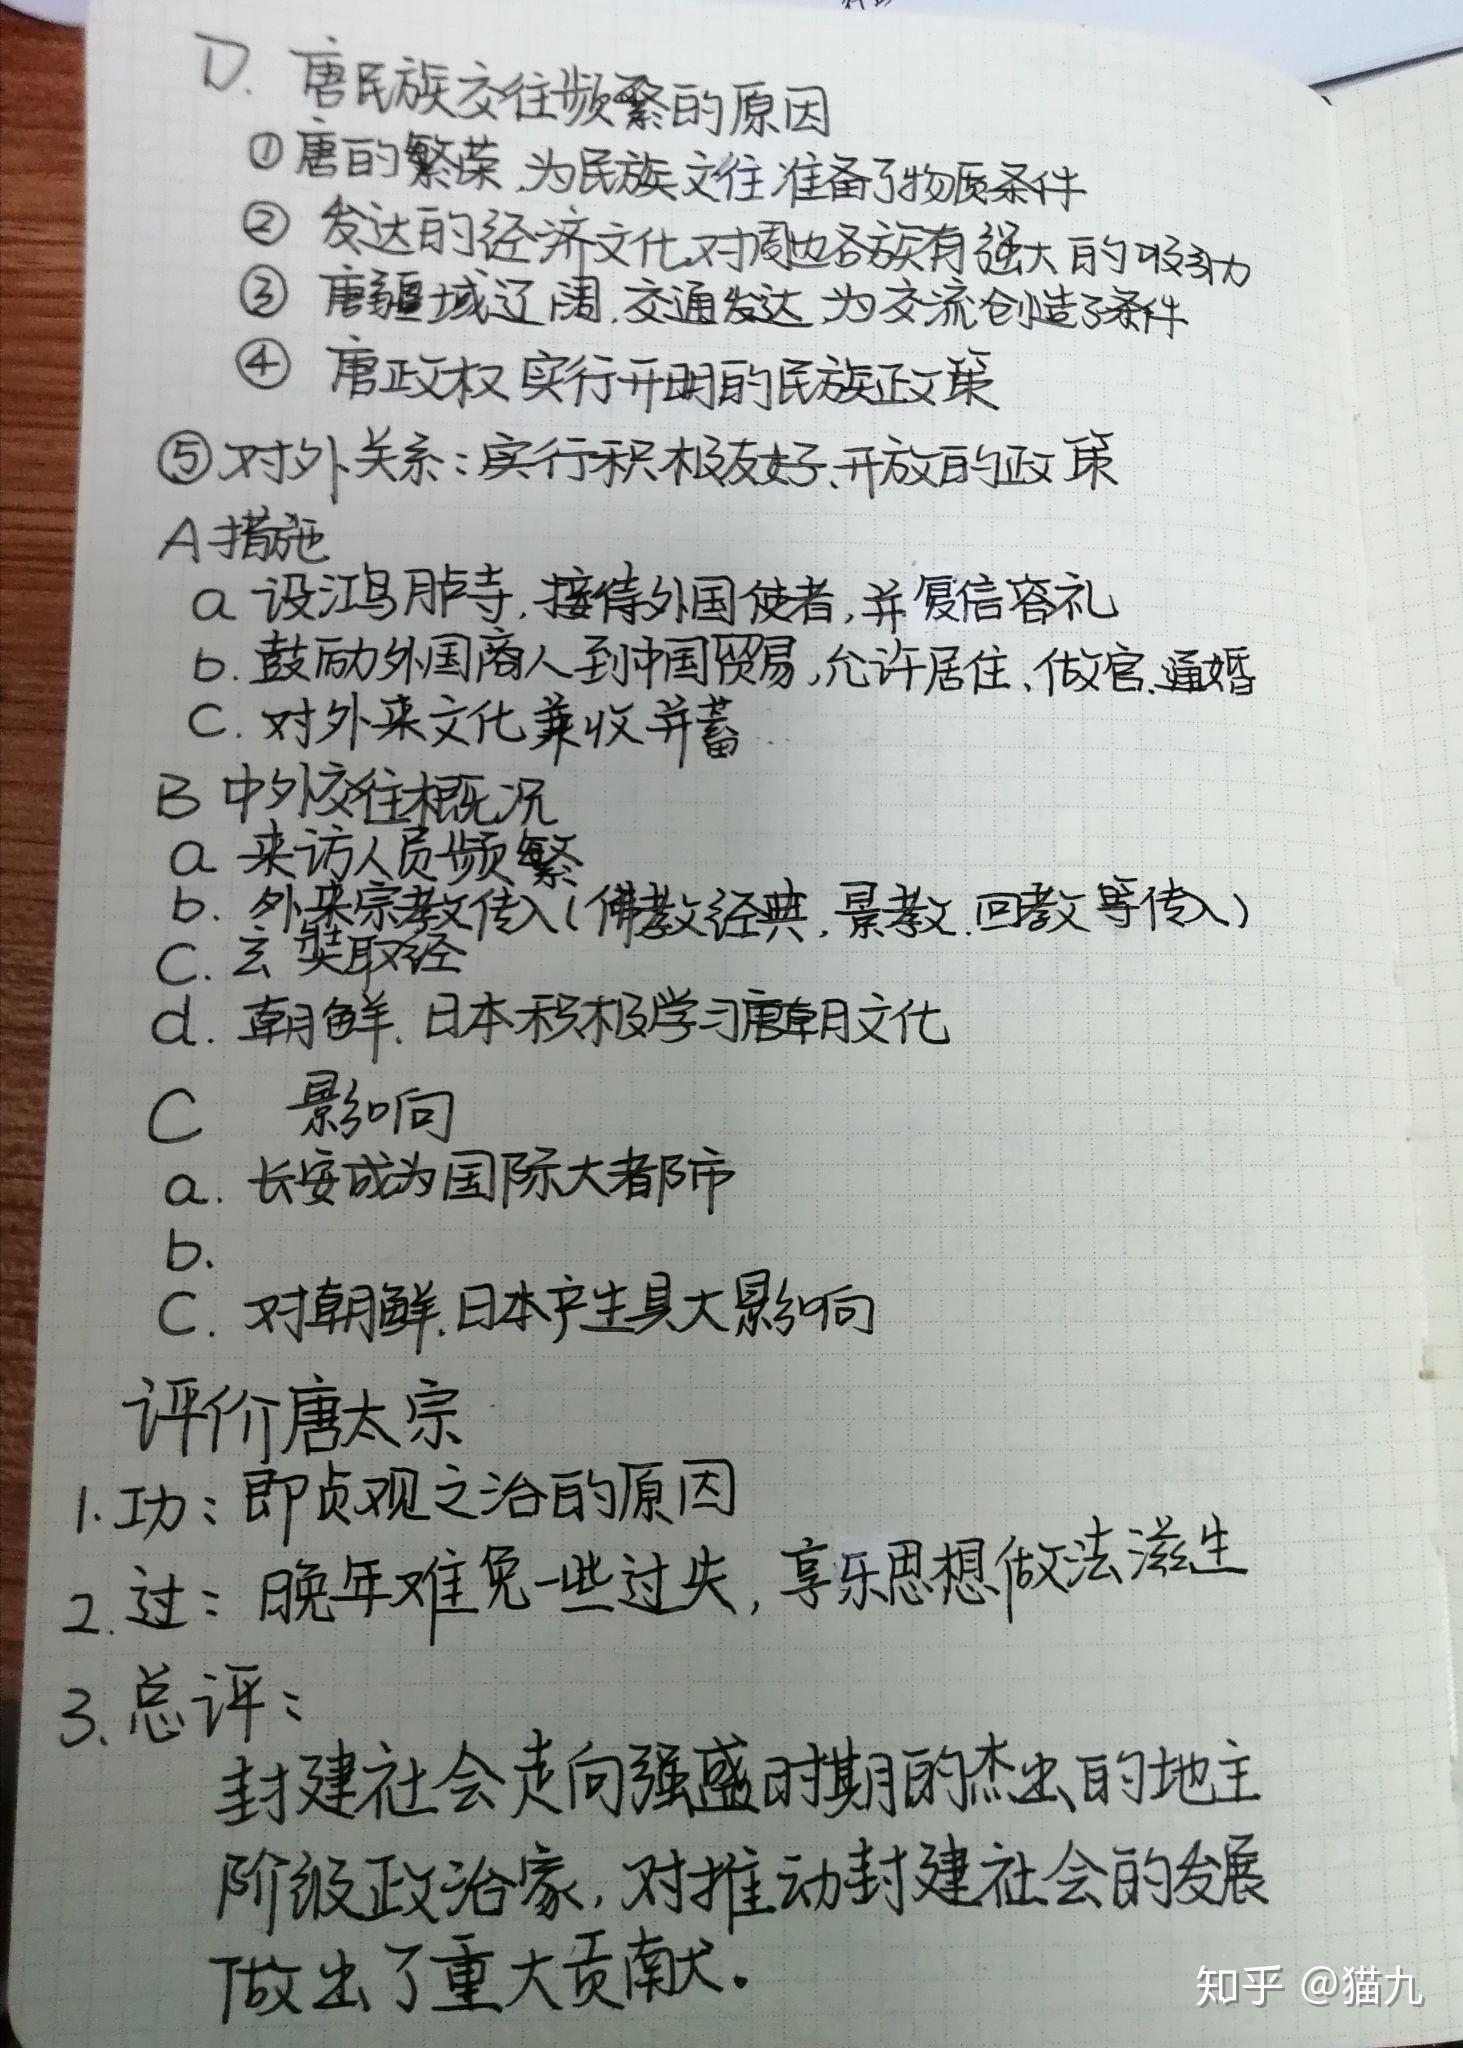 D. 唐民族交往频繁的原因
①唐的繁荣，为民族交往准备了物质条件
② 发达的经济文化，对周边各族有强大的吸引力
③ 唐疆域辽阔，交通发达，为交流创造了条件
④ 唐政权实行开明的民族政策
⑤对外关系：实行积极友好、开放的政策
A 措施
a 设鸿胪寺，接待外国使者，并复信容礼
b. 鼓励外国商人到中国贸易，允许居住、做官、通婚
C. 对外来文化兼收并蓄
B 中外交往概况
a 来访人员频繁
b. 外来宗教传入（佛教经典，景教、回教等传入）
C. 玄奘取经
d. 朝鲜、日本积极学习唐朝文化
C 影响
a. 长安成为国际大都市
b.
C. 对朝鲜、日本产生具大影响
评价唐太宗
1. 功：即贞观之治的原因
2. 过：晚年难免一些过失，享乐思想做法滋生
3. 总评：
封建社会走向强盛时期的杰出的地主
阶级政治家，对推动封建社会的发展
做出了重大贡献。
知乎 @猫九